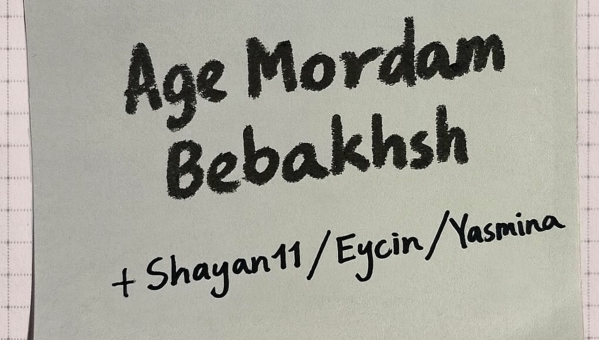 Age Mordam
Bebakhsh
+ Shayan11/Eycin/Yasmina